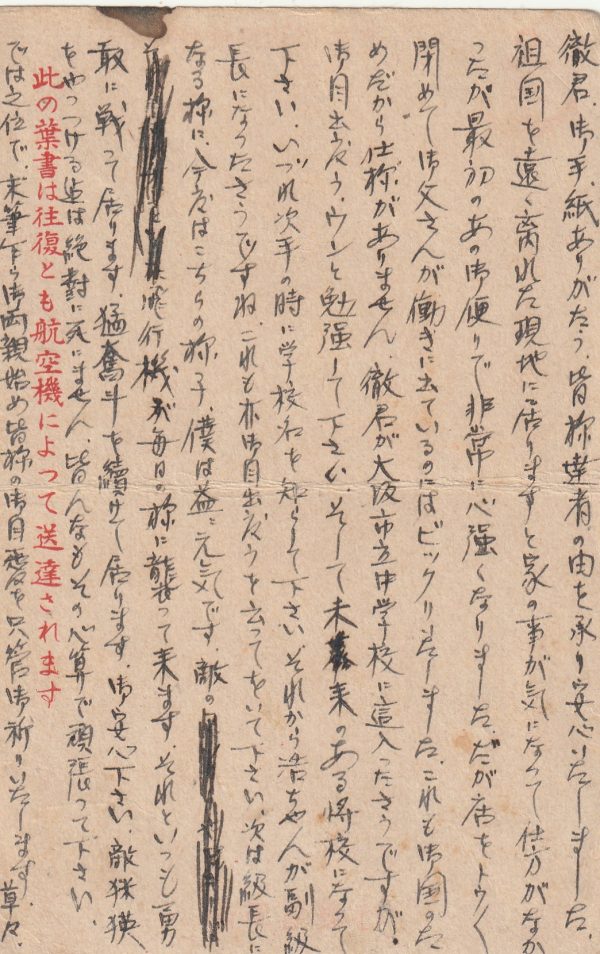 徹君、御手紙ありがたう、皆様達者の由を承り安心いたしました。
祖国を遠く離れた現地に居りますと家の事が気になつて仕方がなか
つたが最初のあの御便りで非常に心強くなりました、だが店をトウ〳〵
閉めて御父さんが働きに出ているのにはビックリしました、これも御国のた
めだから仕様がありません、徹君が大阪市立中学校に這入つたさうですが、
御目出度う、ウンと勉強して下さい、そして未来のある将校になつて
下さい、いづれ次手の時に学校名を知らして下さい それから浩ちやんが副級
長になつたさうですね、これも亦御目出度うを云つてをいて下さい、次は級長に
なる様に、今度はこちらの様子、僕は益々元気です、敵の
飛行機が毎日の様に襲つて来ます、それといつも勇
敢に戦つて居ります、猛奮斗を續けて居ります、御安心下さい、敵米英
をやつつける迄は絶對に死にません、皆んなもその心算で頑張つて下さい、
では之位で、末筆下ら御両親始め皆様の御自愛を只管御祈りいたします、草々、
此の葉書は往復とも航空機によって送達されます